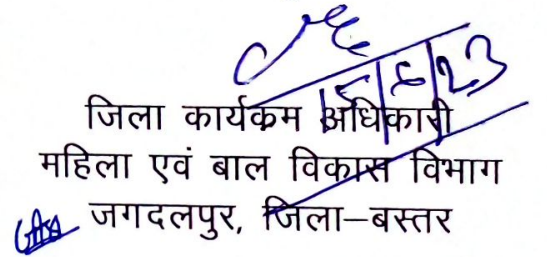 15/6/23
जिला कार्यकम अधिकारी
महिला एवं बाल विकास विभाग
जगदलपुर, जिला–बस्तर